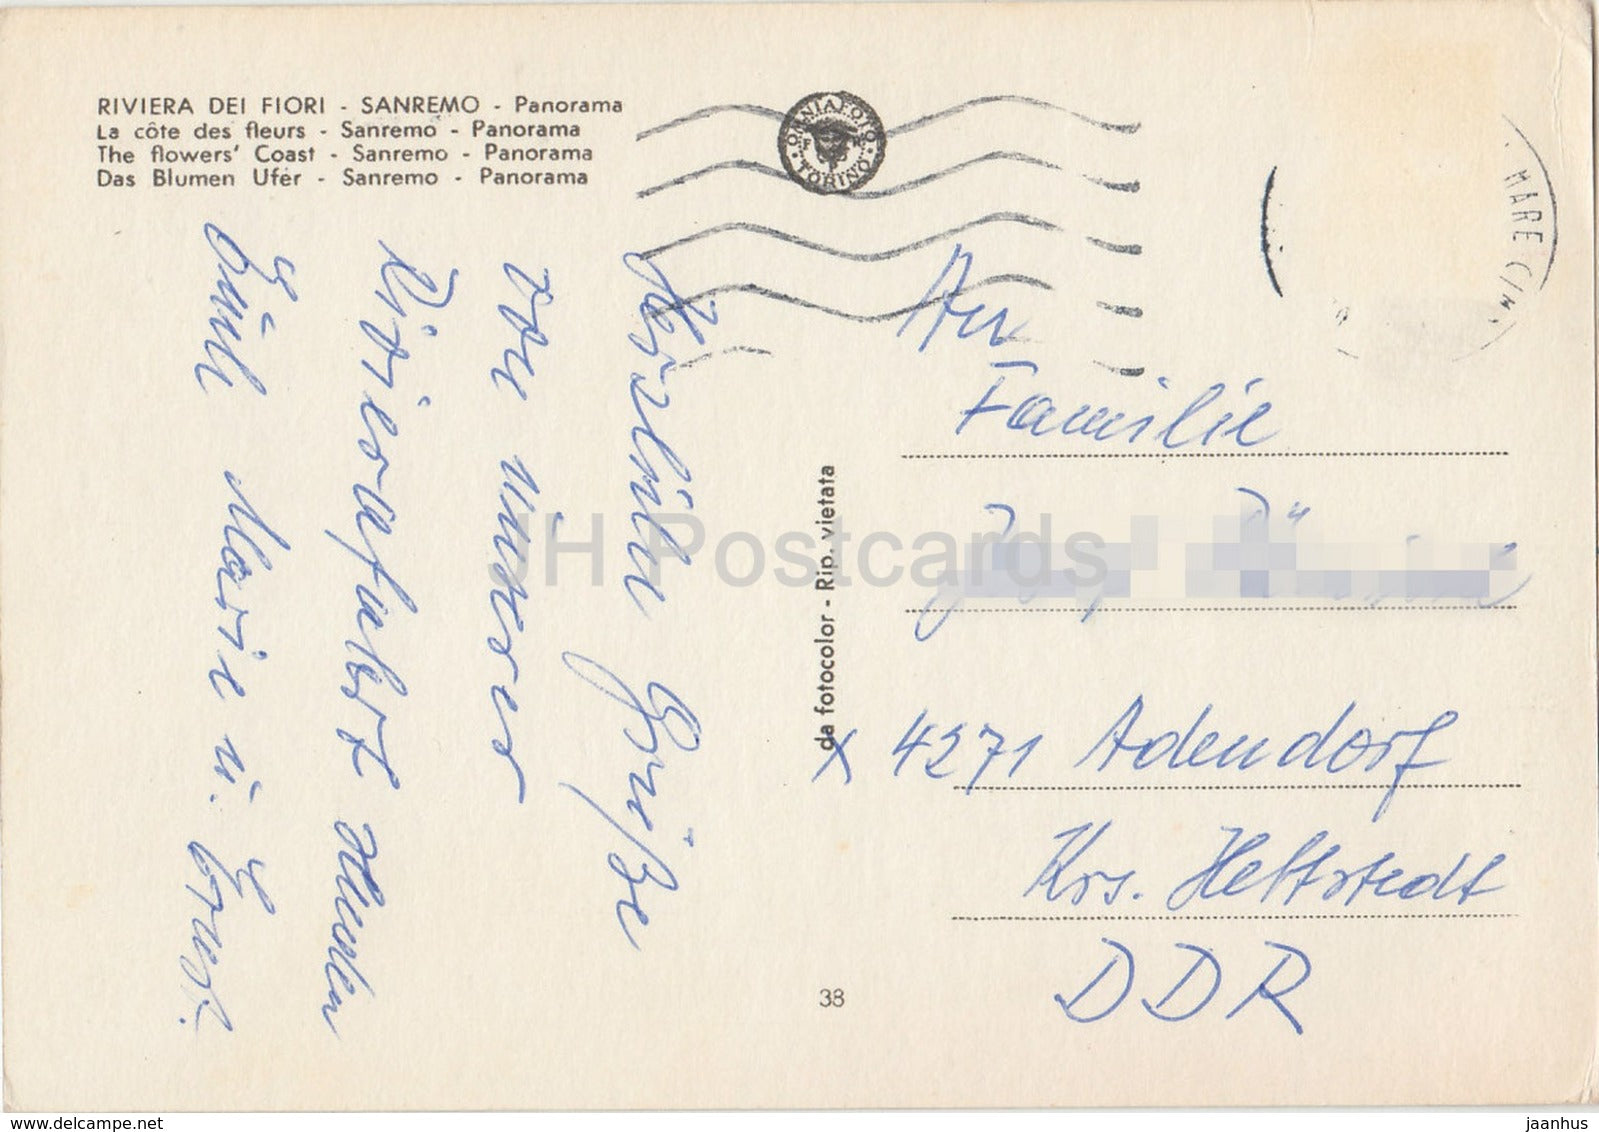 RIVIERA DEI FIORI - SANREMO - Panorama
La côte des fleurs - Sanremo - Panorama
The flowers' Coast - Sanremo - Panorama
Das Blumen Ufer - Sanremo - Panorama
OMNIAFOTO
TORINO
MARE
Herzliche Grüße
von unserer
Rivierafahrt
Marie u. Ernst.
da fotocolor - Rip. vietata
38
An
Familie
x 4271 Adendorf
Krs. Hettstedt
DDR
JH Postcards
delcampe.net
jaanhus